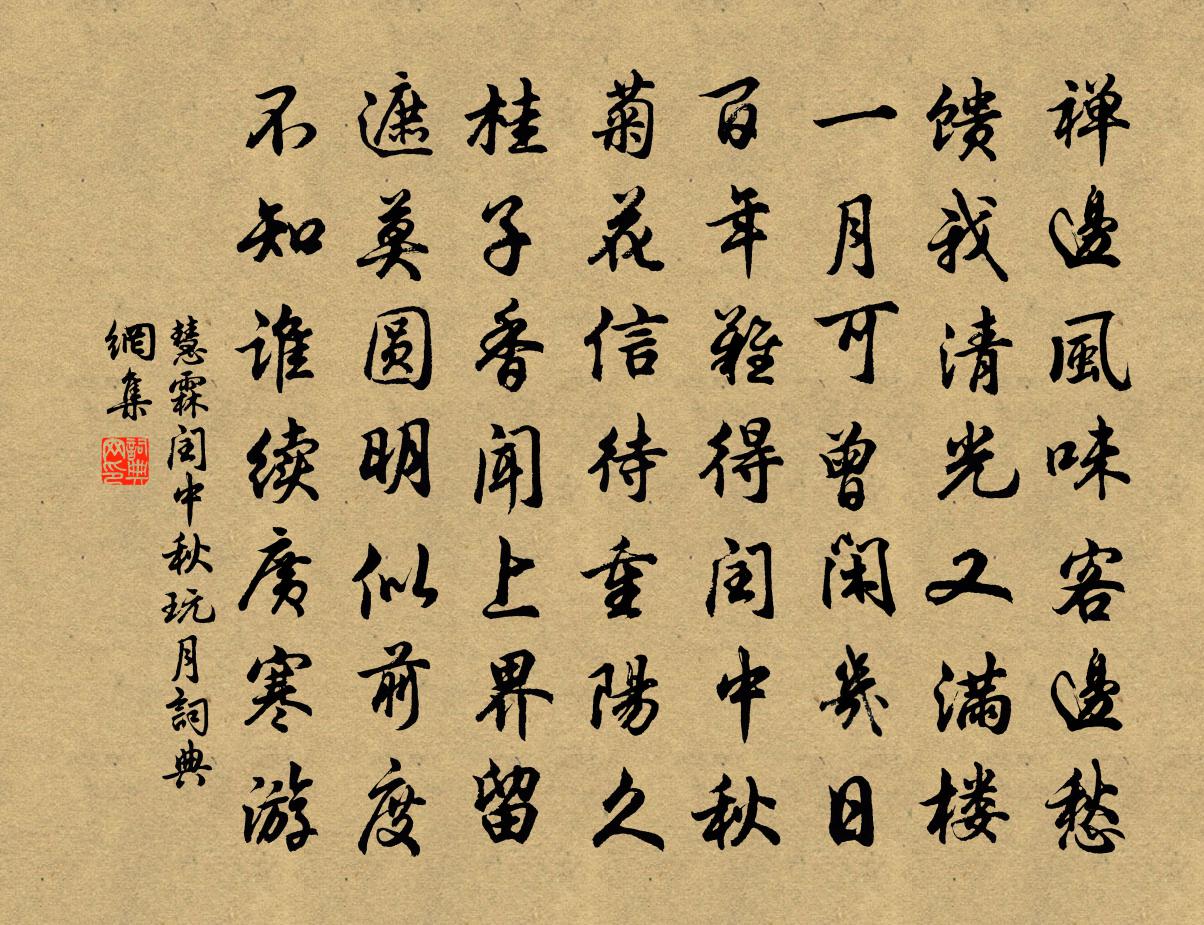 禅邊風味客邊愁
馈我清光又满楼
一月可曾闲幾日
百年難得闰中秋
菊花信待重陽久
桂子香闻上界留
遮莫圆明似前度
不知谁续廣寒游
慧霖闰中秋玩月詞典
網集
詞典
网印